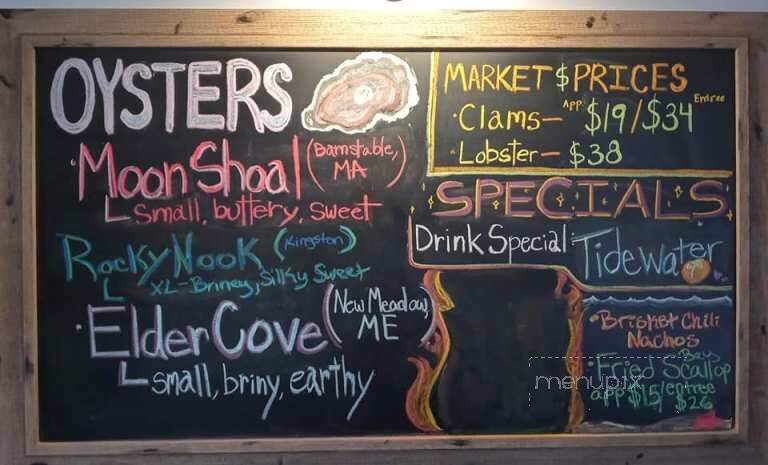 OYSTERS
·Moon Shoal (Barnstable, MA)
small, buttery, sweet
Rocky Nook (Kingston)
XL-Briney, Silky Sweet
·Elder Cove (New Meadow, ME)
small, briny, earthy
MARKET $ PRICES
·Clams— App. $19/$34 Entree
·Lobster— $38
SPECIALS
Drink Special: Tidewater
·Brisket Chili
Nachos
·Fried Bay Scallop
app $15/entree $26
menupix